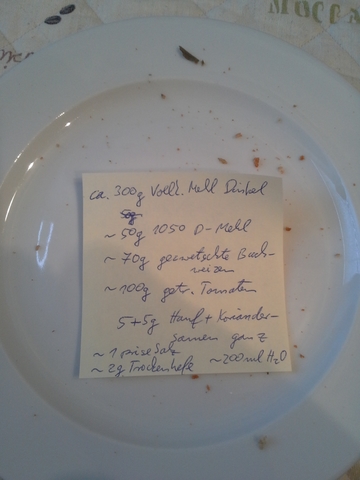 MOCCA
ca. 300g Vollk. Mehl Dinkel
~ 50g 1050 D-Mehl
~ 70g gequetschte Buch-
weizen
~ 100g getr. Tomaten
5+5g Hanf + Koriander-
samen ganz
~ 1 prise Salz
~ 2g Trockenhefe ~200ml H₂O